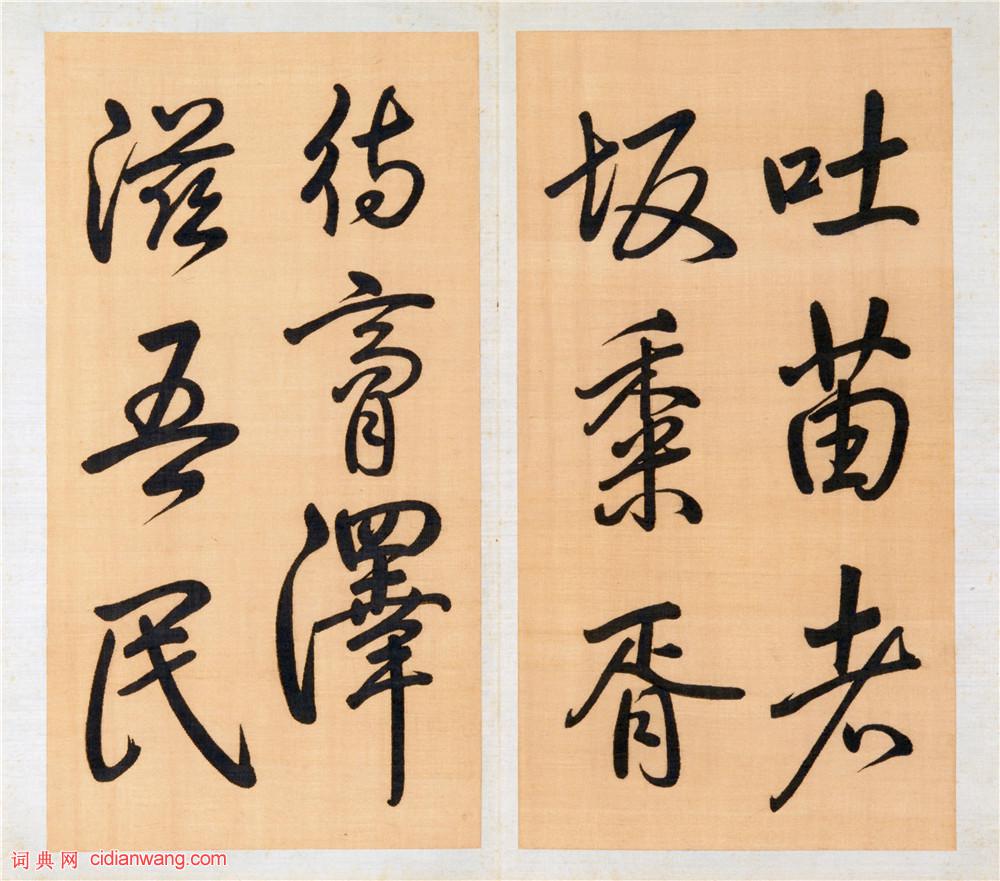 吐苗者
坂黍胥
待膏澤
滋吾民
词典网 cidianwang.com